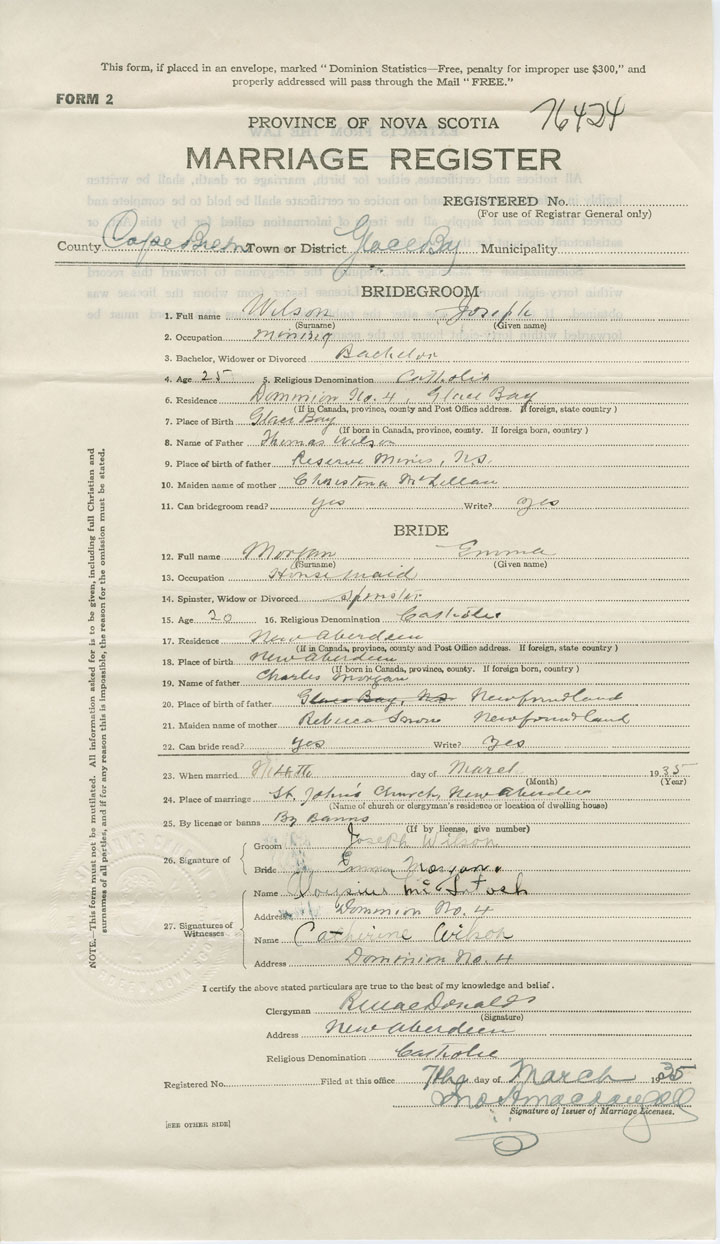 This form, if placed in an envelope, marked "Dominion Statistics—Free, penalty for improper use $300," and
properly addressed will pass through the Mail "FREE."
FORM 2
76424
PROVINCE OF NOVA SCOTIA
MARRIAGE REGISTER
REGISTERED No.
(For use of Registrar General only)
County Cape Breton Town or District Glace Bay Municipality
BRIDEGROOM
1. Full name Wilson Joseph
(Surname) (Given name)
2. Occupation mining
3. Bachelor, Widower or Divorced Bachelor
4. Age 25 5. Religious Denomination Catholic
6. Residence Dominion No. 4, Glace Bay
(If in Canada, province, county and Post Office address. If foreign, state country)
7. Place of Birth Glace Bay
(If born in Canada, province, county. If foreign born, country)
8. Name of Father Thomas Wilson
9. Place of birth of father Reserve Mines, N.S.
10. Maiden name of mother Christena McLellan
11. Can bridegroom read? yes Write? yes
BRIDE
12. Full name Morgan Emma
(Surname) (Given name)
13. Occupation Housemaid
14. Spinster, Widow or Divorced spinster
15. Age 20 16. Religious Denomination Catholic
17. Residence New Aberdeen
(If in Canada, province, county and Post Office address. If foreign, state country)
18. Place of birth New Aberdeen
(If born in Canada, province, county. If foreign born, country)
19. Name of father Charles Morgan
20. Place of birth of father Glace Bay, N.S. Newfoundland
21. Maiden name of mother Rebecca Newfoundland
22. Can bride read? yes Write? yes
23. When married day of March 1935
(Month) (Year)
24. Place of marriage St. John's Church, New Aberdeen
(Name of church or clergyman's residence or location of dwelling house)
25. By license or banns By Banns
(If by license, give number)
26. Signature of
Groom Joseph Wilson
Bride Emma Morgan.
27. Signatures of Witnesses
Name McIntosh
Address Dominion No. 4
Name Catherine Wilson
Address Dominion No. 4
I certify the above stated particulars are true to the best of my knowledge and belief.
Clergyman MacDonald
(Signature)
Address New Aberdeen
Religious Denomination Catholic
Registered No. Filed at this office 7th day of March 1935
Signature of Issuer of Marriage Licenses.
[SEE OTHER SIDE]
NOTE.—This form must not be mutilated. All information asked for is to be given, including full Christian and
surnames of all parties, and if for any reason this is impossible, the reason for the omission must be stated.